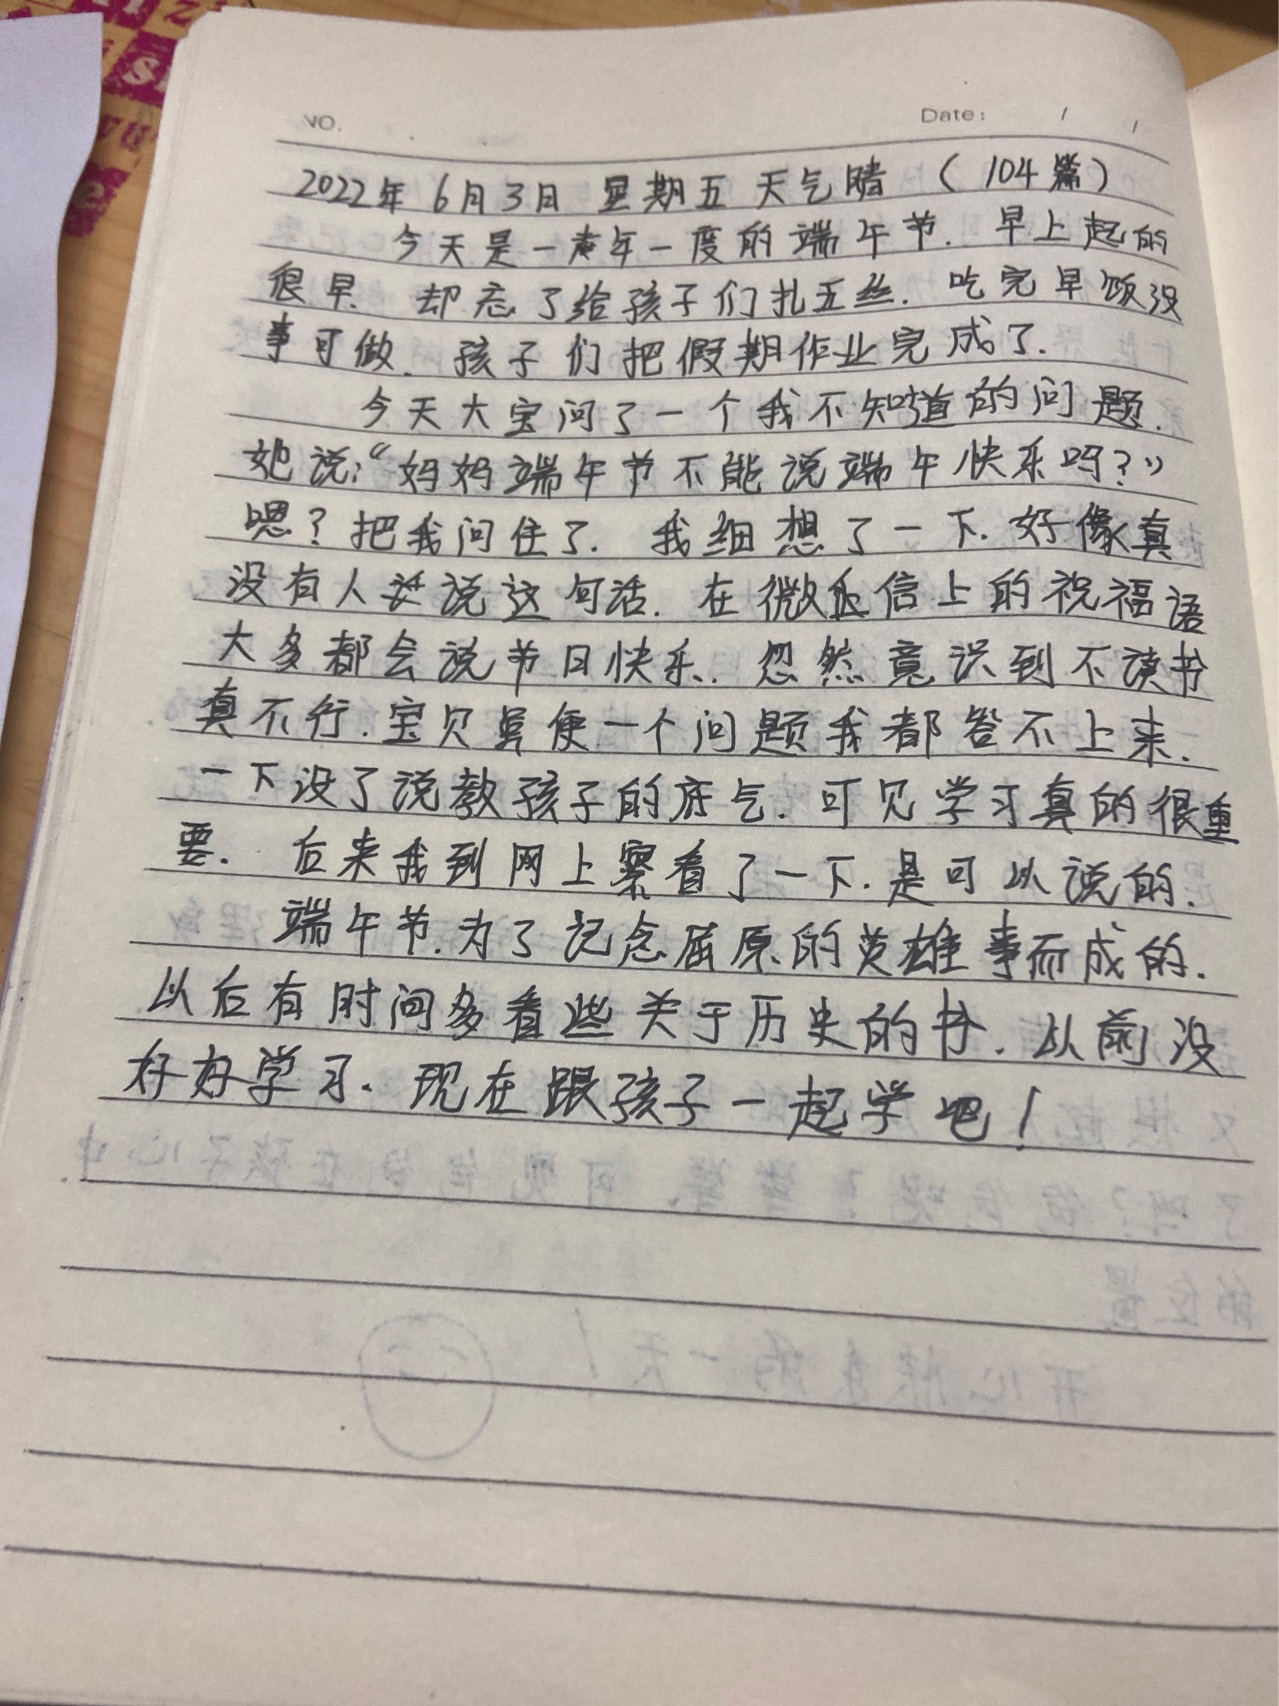 NO.
Date: / /
2022年6月3日 星期五 天气晴 (104篇)
今天是一年一度的端午节.早上起的
很早.却忘了给孩子们扎五丝.吃完早饭没
事可做.孩子们把假期作业完成了.
今天大宝问了一个我不知道的问题.
她说:“妈妈端午节不能说端午快乐吗?”
嗯?把我问住了.我细想了一下.好像真
没有人说这句话.在微信上的祝福语
大多都会说节日快乐.忽然意识到不读书
真不行.宝贝便一个问题我都答不上来.
一下没了说教孩子的底气.可见学习真的很重
要.后来我到网上察看了一下.是可以说的.
端午节.为了记念屈原的英雄事而成的.
以后有时间多看些关于历史的书.从前没
好好学习.现在跟孩子一起学吧!